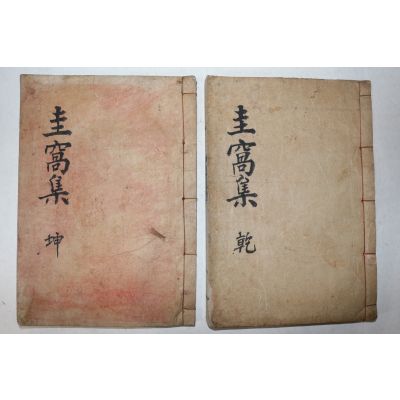 圭窩集 乾
圭窩集 坤